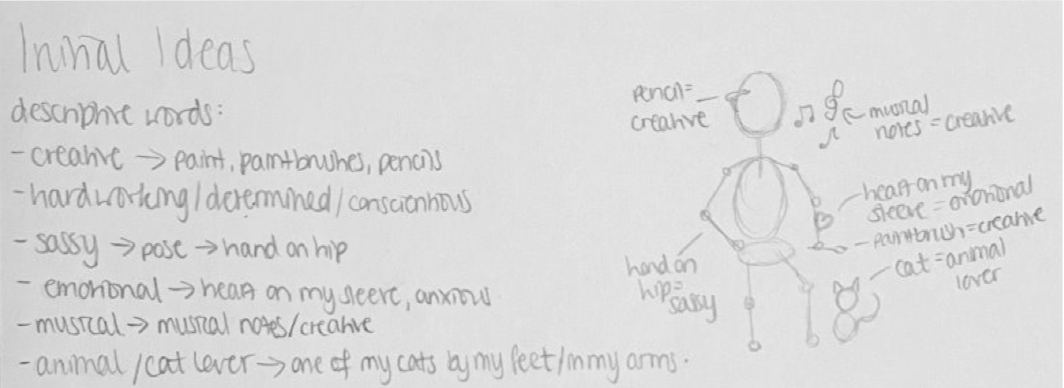 Initial Ideas
descriptive words:
- creative → paint, paintbrushes, pencils
- hardworking/determined/conscientious
- sassy → pose → hand on hip
- emotional → heart on my sleeve, anxious
- musical → musical notes/creative
- animal/cat lover → one of my cats by my feet/in my arms.
pencil =
creative
musical
notes = creative
heart on my
sleeve = emotional
paintbrush = creative
cat = animal
lover
hand on
hip =
sassy